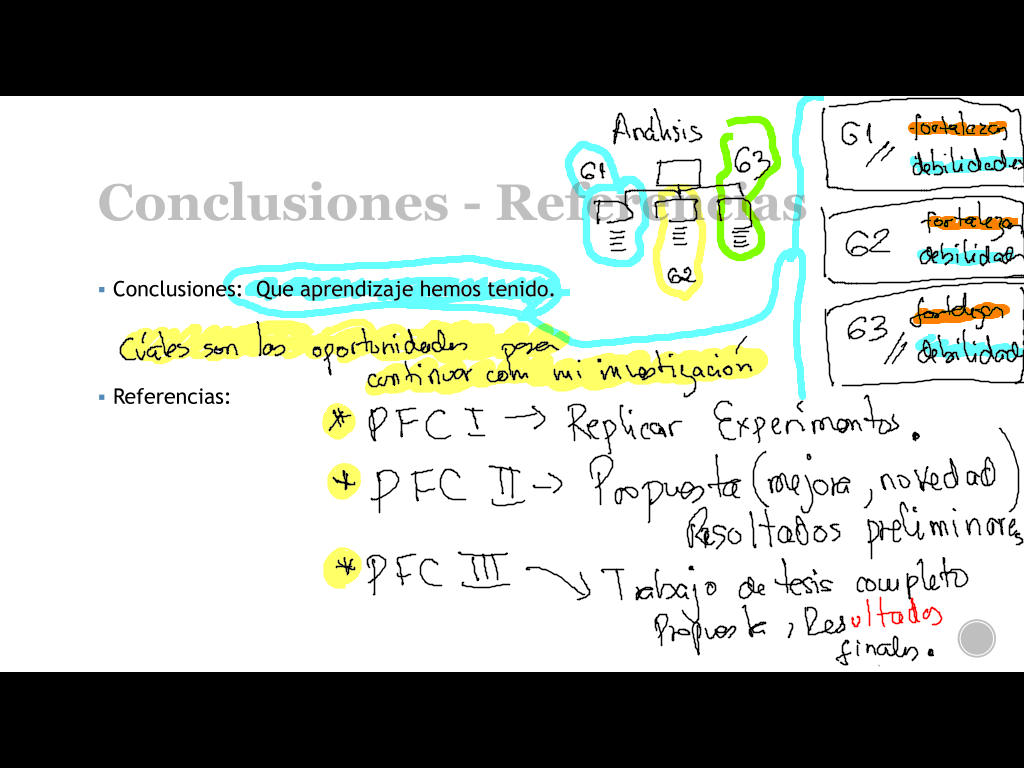 Análisis
G1
G3
Conclusiones - Referencias
G2
G1 fortalezas
debilidades
G2 fortaleza
debilidad
G3 fortalezas
debilidad
Conclusiones: Que aprendizaje hemos tenido.
Cúales son las oportunidades para
continuar com mi investigación
Referencias:
* PFC I → Replicar Experimentos.
* PFC II → Propuesta (mejora, novedad)
Resultados preliminares
* PFC III → Trabajo de tesis completo
Propuesta, Resultados
finales.